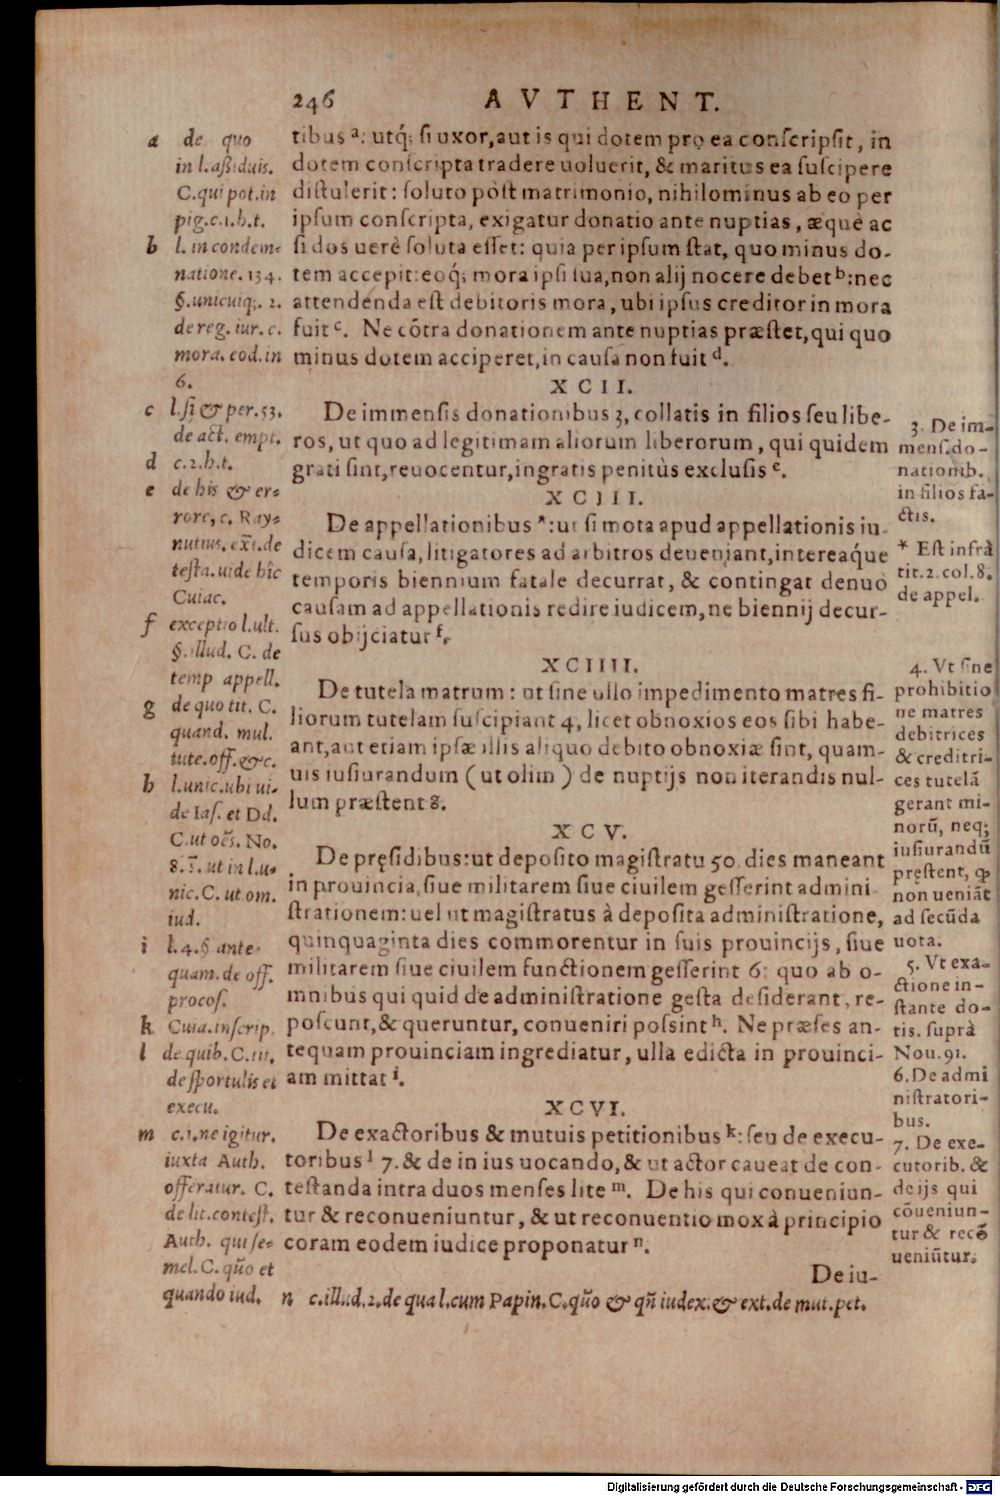 246 AVTHENT.
tibus a: utq́; si uxor, aut is qui dotem pro ea conscripsit, in
dotem conscripta tradere uoluerit, & maritus ea suscipere
distulerit: soluto pòst matrimonio, nihilominus ab eo per
ipsum conscripta, exigatur donatio ante nuptias, æquè ac
si dos uerè soluta esset: quia per ipsum stat, quo minus do-
tem accepit: eoq́; mora ipsi sua, non alij nocere debet b: nec
attendenda est debitoris mora, ubi ipsus creditor in mora
fuit c. Ne cōtra donationem ante nuptias præstet, qui quo
minus dotem acciperet, in causa non fuit d.
XCII.
De immensis donationibus 3, collatis in filios seu libe-
ros, ut quo ad legitimam aliorum liberorum, qui quidem
grati sint, reuocentur, ingratis penitùs exclusis e.
XCIII.
De appellationibus *: ut si mota apud appellationis iu
dicem causa, litigatores ad arbitros deueniant, intereaq́ue
temporis biennium fatale decurrat, & contingat denuò
causam ad appellationis redire iudicem, ne biennij decur-
sus obijciatur f.
XCIIII.
De tutela matrum: ut sine ullo impedimento matres fi-
liorum tutelam suscipiant 4, licet obnoxios eos sibi habe-
ant, aut etiam ipsæ illis aliquo debito obnoxiæ sint, quam-
uis iusiurandum (ut olim) de nuptijs non iterandis nul-
lum præstent g.
XCV.
De pręsidibus: ut deposito magistratu 50. dies maneant
in prouincia, siue militarem siue ciuilem gesserint admini
strationem: uel ut magistratus à deposita administratione,
quinquaginta dies commorentur in suis prouincijs, siue
militarem siue ciuilem functionem gesserint 6: quo ab o-
mnibus qui quid de administratione gesta desiderant, re-
poscunt, & queruntur, conueniri possint h. Ne præses an-
tequam prouinciam ingrediatur, ulla edicta in prouinci-
am mittat i.
XCVI.
De exactoribus & mutuis petitionibus k: seu de execu-
toribus l 7. & de in ius uocando, & ut actor caueat de con-
testanda intra duos menses lite m. De his qui conueniun-
tur & reconueniuntur, & ut reconuentio mox à principio
coram eodem iudice proponatur n.
De iu-
a de quo
in l. aßiduis.
C. qui pot. in
pig. c. 1. h. t.
b l. in condem-
natione. 134.
§. unicuiq;. 2.
de reg. iur. c.
mora. eod. in
6.
c l. si & per. 53.
de act. empt.
d c. 2. h. t.
e de his & er-
rore, c. Ray-
nutius. ext̄. de
testa. uide hîc
Cuiac.
f exceptio l. ult.
§. illud. C. de
temp appell.
g de quo tit. C.
quand. mul.
tute. off. &c.
h l. unic. ubi ui-
de Ias. et Dd.
C. ut oēs. No.
8. T̄. ut in l. u-
nic. C. ut om.
iud.
i l. 4. § ante-
quam. de off.
procos.
k Cuia. inscrip.
l de quib. C. tit.
de sportulis et
execu.
m c. 1. ne igitur.
iuxta Auth.
offeratur. C.
de lit. contest.
Auth. qui se-
mel. C. quō et
quando iud.
n c. illud. 2. de qua l. cum Papin. C. quō & qñ iudex. & ext. de mut. pet.
3. De im-
mens. do-
nationib.
in filios fa-
ctis.
* Est infrà
tit. 2. col. 8.
de appel.
4. Vt sine
prohibitio
ne matres
debitrices
& creditri-
ces tutelā
gerant mi-
norū, neq;
iusiurandū
pręstent, ꝙ
non ueniāt
ad secūda
uota.
5. Vt exa-
ctione in-
stante do-
tis. suprà
Nou. 91.
6. De admi
nistratori-
bus.
7. De exe-
cutorib. &
de ijs qui
cōueniun-
tur & recō
ueniūtur.
Digitalisierung gefördert durch die Deutsche Forschungsgemeinschaft - DFG